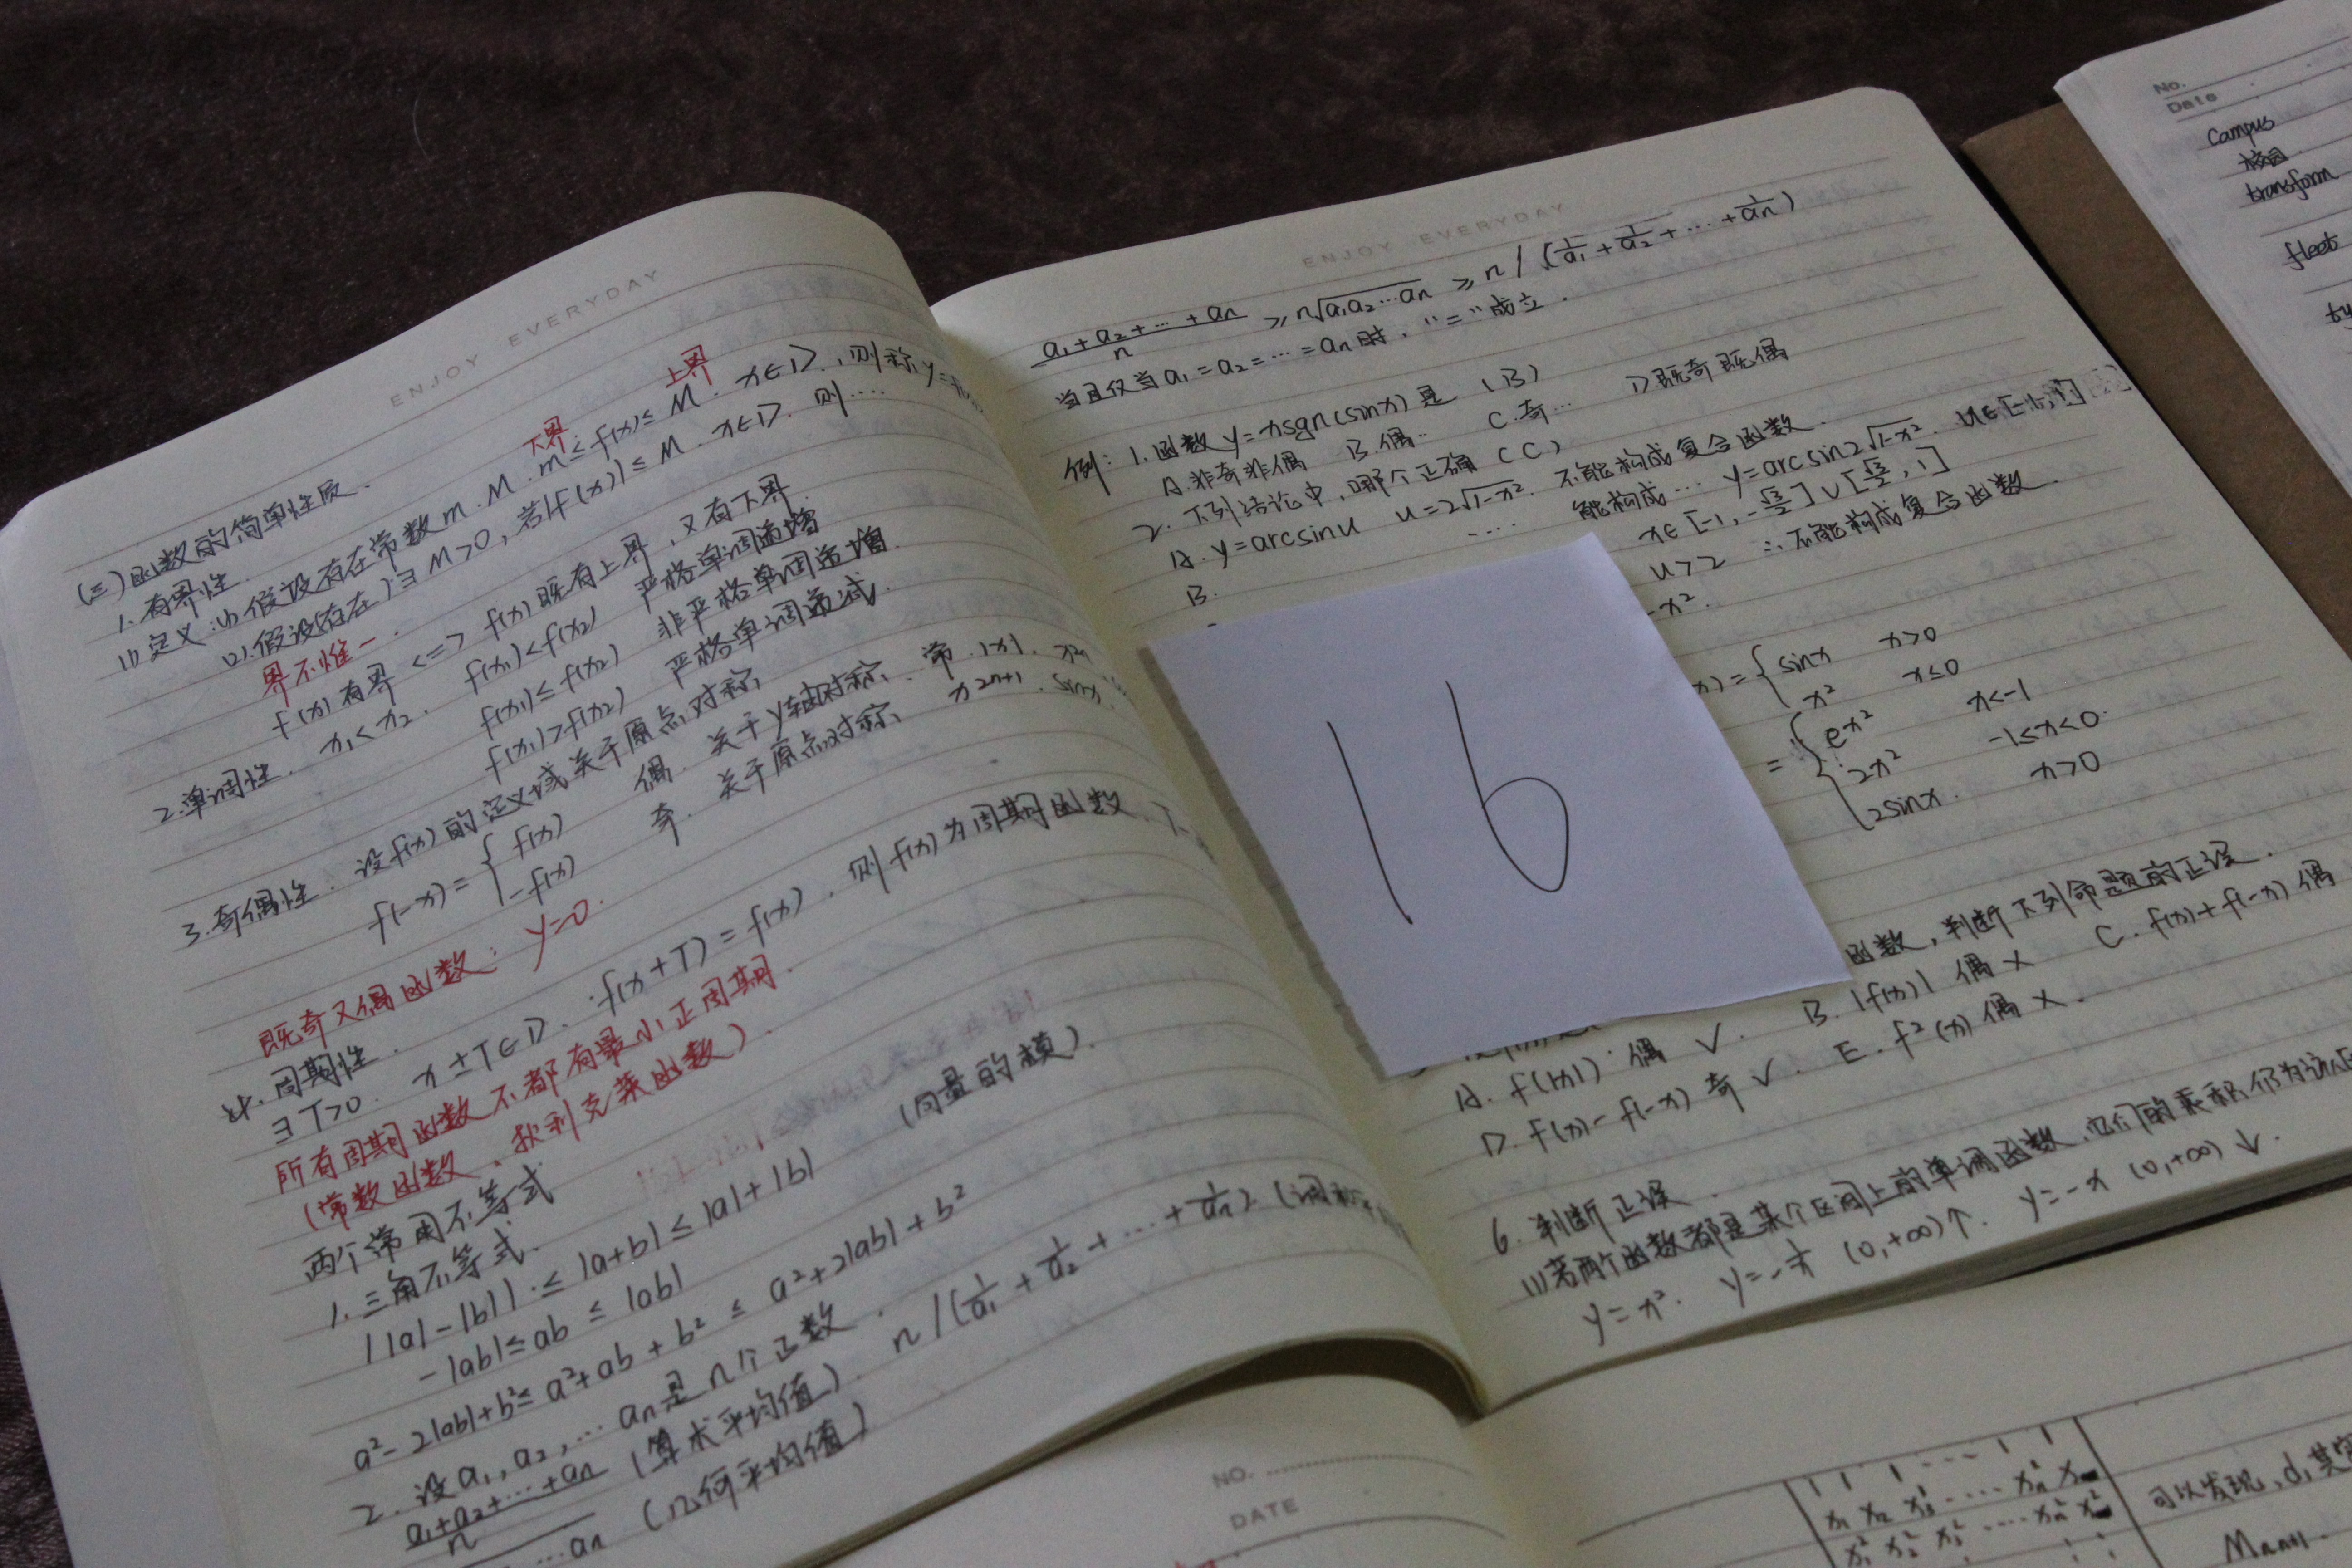 ENJOY EVERYDAY
(三)函数的简单性质.
1.有界性.
(1)定义:(1)假设存在常数m.M. m≤f(x)≤M. x∈D.,则称y=
下界
上界
(2).假设(存在)∃M>0,若|f(x)|≤M. x∈D. 则....
界不惟一.
f(x)有界 <=> f(x)既有上界,又有下界.
2.单调性. x₁<x₂. f(x₁)<f(x₂) 严格单调递增
f(x₁)≤f(x₂) 非严格单调递增.
f(x₁)>f(x₂) 严格单调递减.
3.奇偶性. 设f(x)的定义域关于原点对称
f(-x)={ f(x) 偶. 关于y轴对称. 常. |x|.
-f(x) 奇. 关于原点对称. x²ⁿ⁺¹. sinx
既奇又偶函数: y=0.
4.周期性.
∃T>0. x±T∈D. f(x+T)=f(x). 则f(x)为周期函数.
所有周期函数不都有最小正周期.
(常数函数、狄利克莱函数).
两个常用不等式
1.三角不等式.
||a|-|b||≤|a+b|≤|a|+|b| (向量的模).
-|ab|≤ab≤|ab|
a²-2|ab|+b²≤a²+ab+b²≤a²+2|ab|+b²
2.设a₁,a₂,…an是n个正数.
a₁+a₂+…+an/n (算术平均值). n/(1/a₁+1/a₂+…+1/an)
…an (几何平均值)
ENJOY EVERYDAY
a₁+a₂+…+an/n ≥ n√a₁a₂…an ≥ n/(1/a₁+1/a₂+…+1/an)
当且仅当a₁=a₂=…=an时."="成立.
例:1.函数y=xsgn(sinx)是(B)
A.非奇非偶 B.偶.. C.奇… D既奇既偶
2.下列结论中,哪个正确(C)
A. y=arcsinu u=2√1-x². 不能构成复合函数.
B. … 能构成… y=arcsin2√1-x². u∈[-1,1]
x∈[-1,-√3/2]∪[√3/2,1]
u>2 ∴不能构成复合函数.
-x².
x)={ sinx x>0
x² x≤0
={ eˣ² x<-1
2x² -1≤x<0.
2sinx. x>0
16
函数,判断下列命题的正误.
A. f(|x|)偶 √. B. |f(x)| 偶 × C. f(x)+f(-x) 偶
D. f(x)-f(-x) 奇 √. E. f²(x) 偶 ×.
6.判断正误.
(1)若两个函数都是某个区间上的单调函数,它们的乘积仍为该
y=x². y=-1/x (0,+∞)↑. y=-x (0,+∞)↓.
No.
Date
campus
校园
transform
fleet
NO.
DATE
1 1 1 … 1 1
可以发现,d,其实